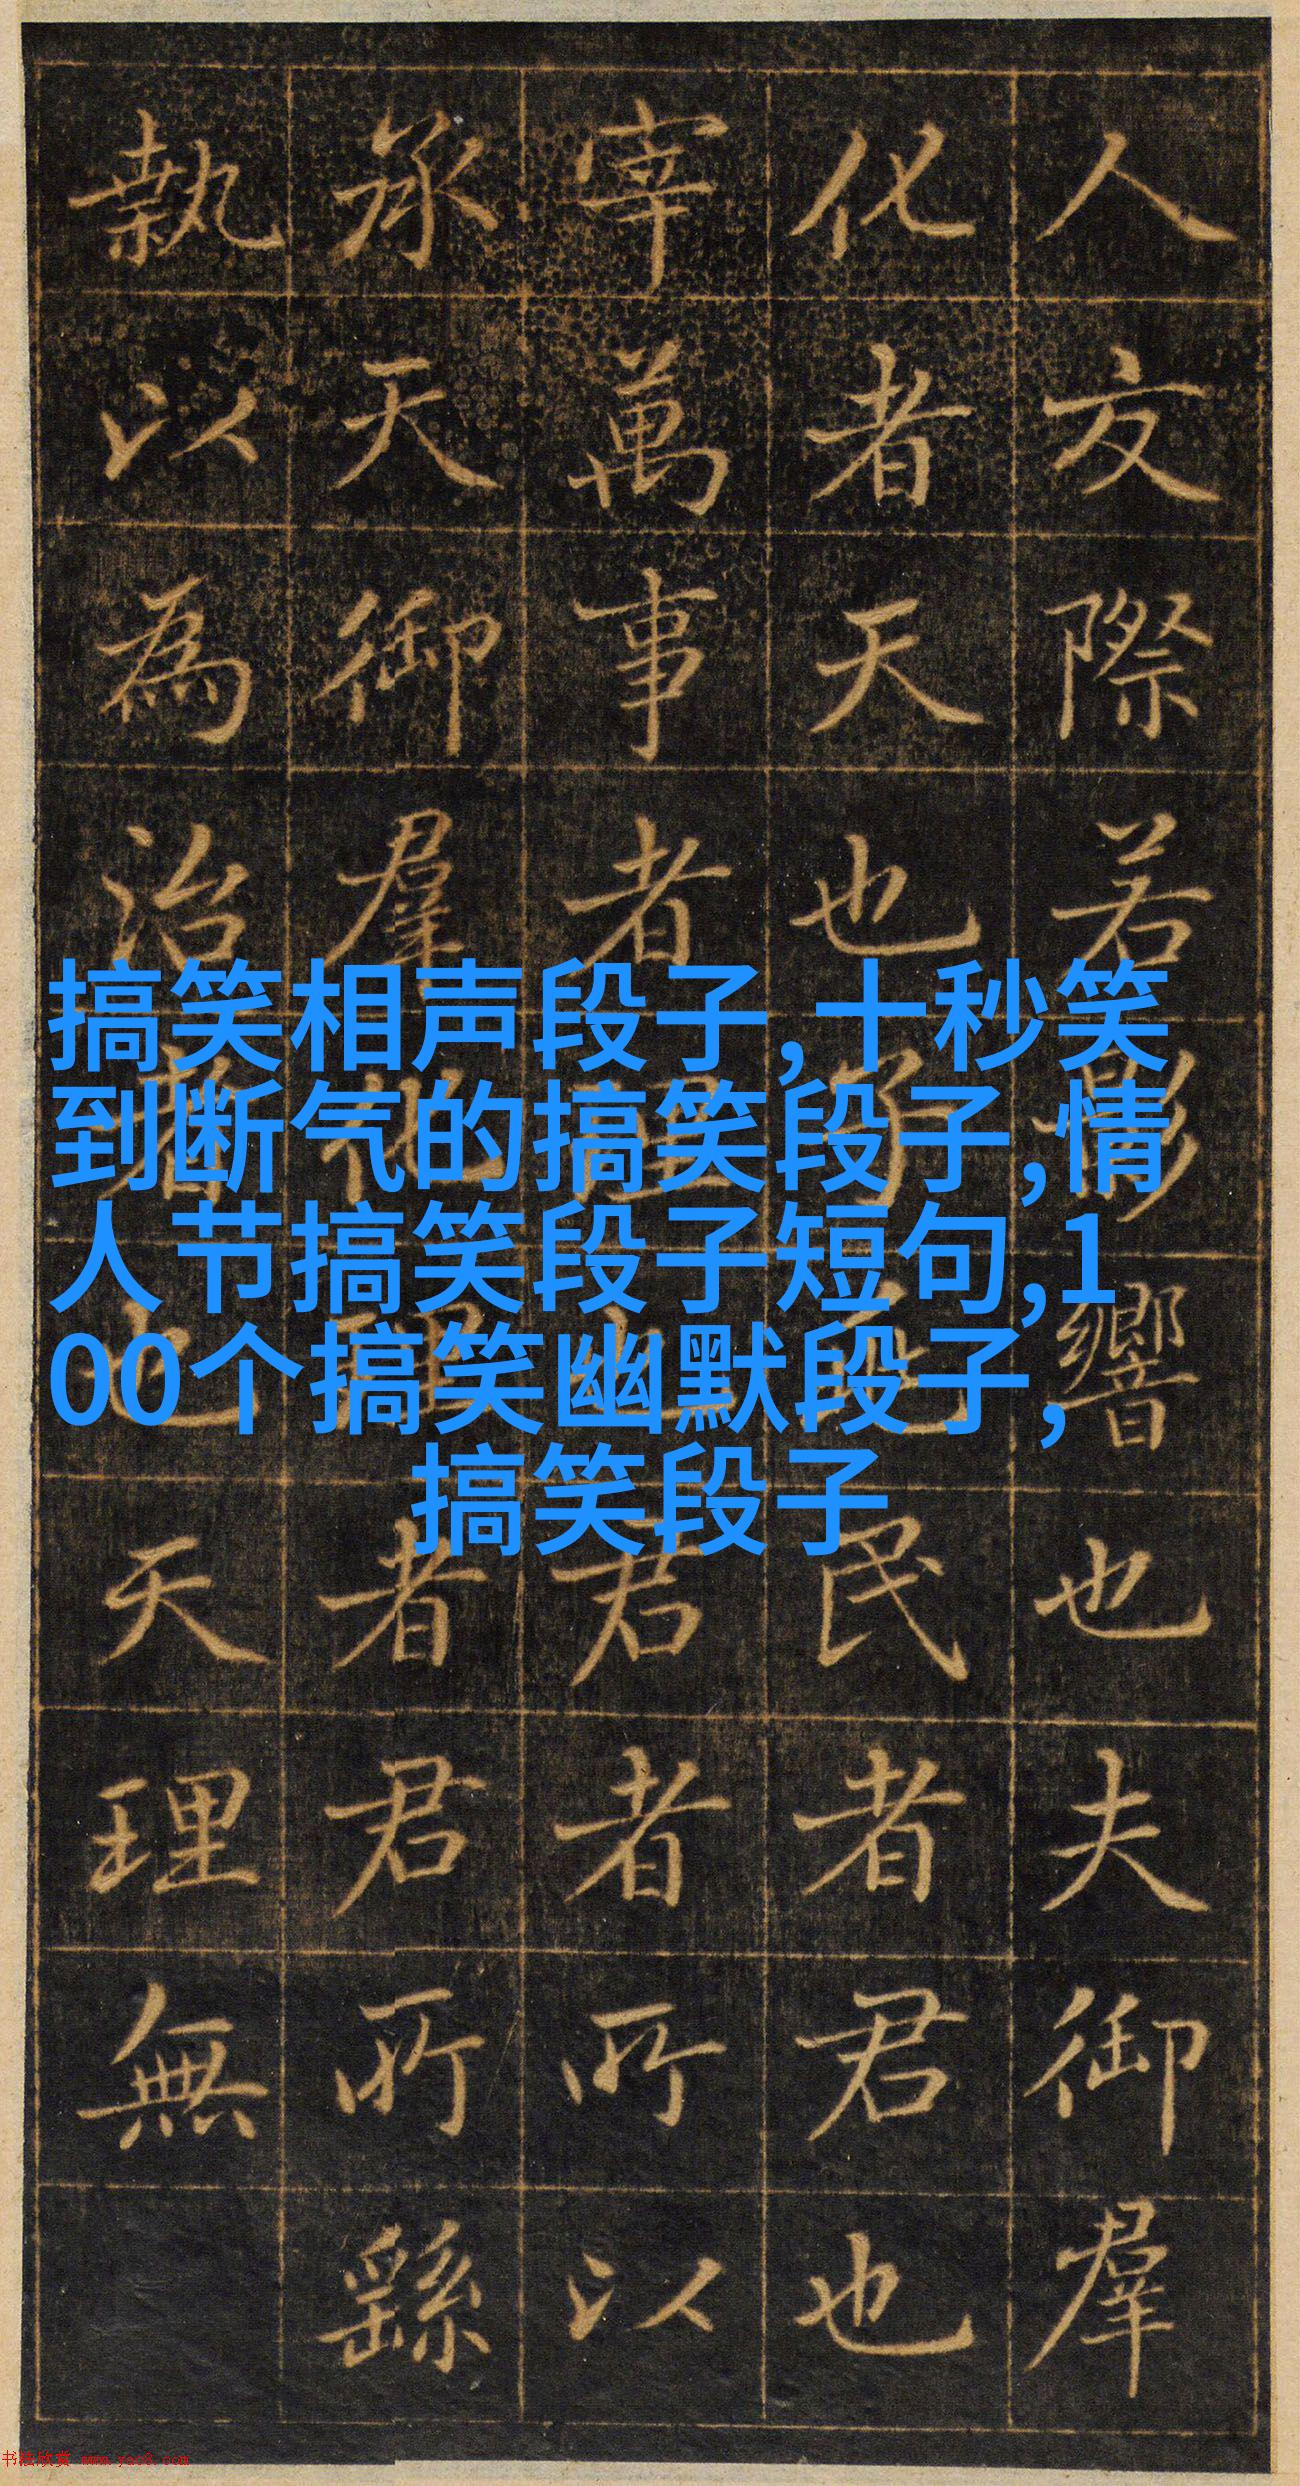 人交際若影響也夫御羣
化者天也子民者君也
宰萬事者理也君者所以
承天御羣化理者君所繇
執以為治者也天理無
搞笑相声段子,十秒笑
到断气的搞笑段子,情
人节搞笑段子短句,1
00个搞笑幽默段子,
搞笑段子
书法欣赏 www.yac8.com